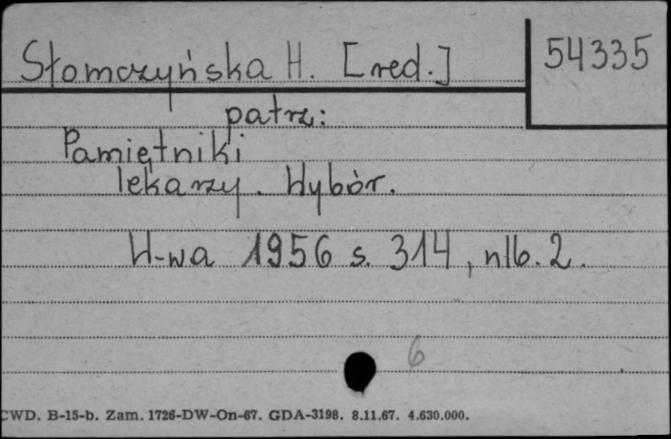 Słomczyńska H. [red.]
54335
patrz:
Pamiętniki
lekarzy. Wybór.
W-wa 1956 s. 314, nlb. 2.
6
CWD. B-15-b. Zam. 1726-DW-On-67. GDA-3198. 8.11.67. 4.630.000.